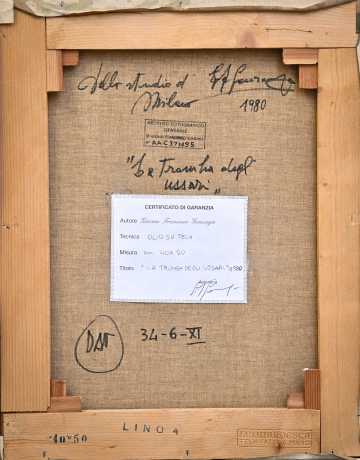 Dello studio di
Milano
1980
ARCHIVIO FOTOGRAFICO
GENERALE
N° AAC37N95
"La Tromba degli
ussari"
CERTIFICATO DI GARANZIA
Autore Giovan Francesco Gonzaga
Tecnica OLIO SU TELA
Misura cm 40X50
Titolo "LA TROMBA DEGLI USSARI" 1980
34-6-XI
LINO 4
40*50
TELAITALIANO